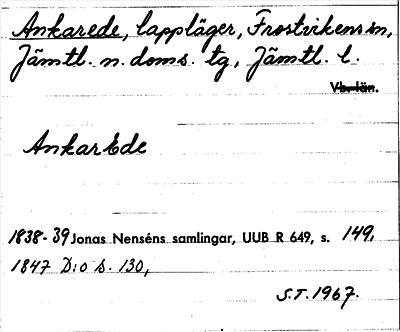 Ankarede, lappläger, Frostvikens sn,
Jämtl. n. doms. tg, Jämtl. l.
Vb. län.
AnkarEde
1838-39 Jonas Nenséns samlingar, UUB R 649, s. 149,
1847 D:o s. 130,
S.T. 1967.